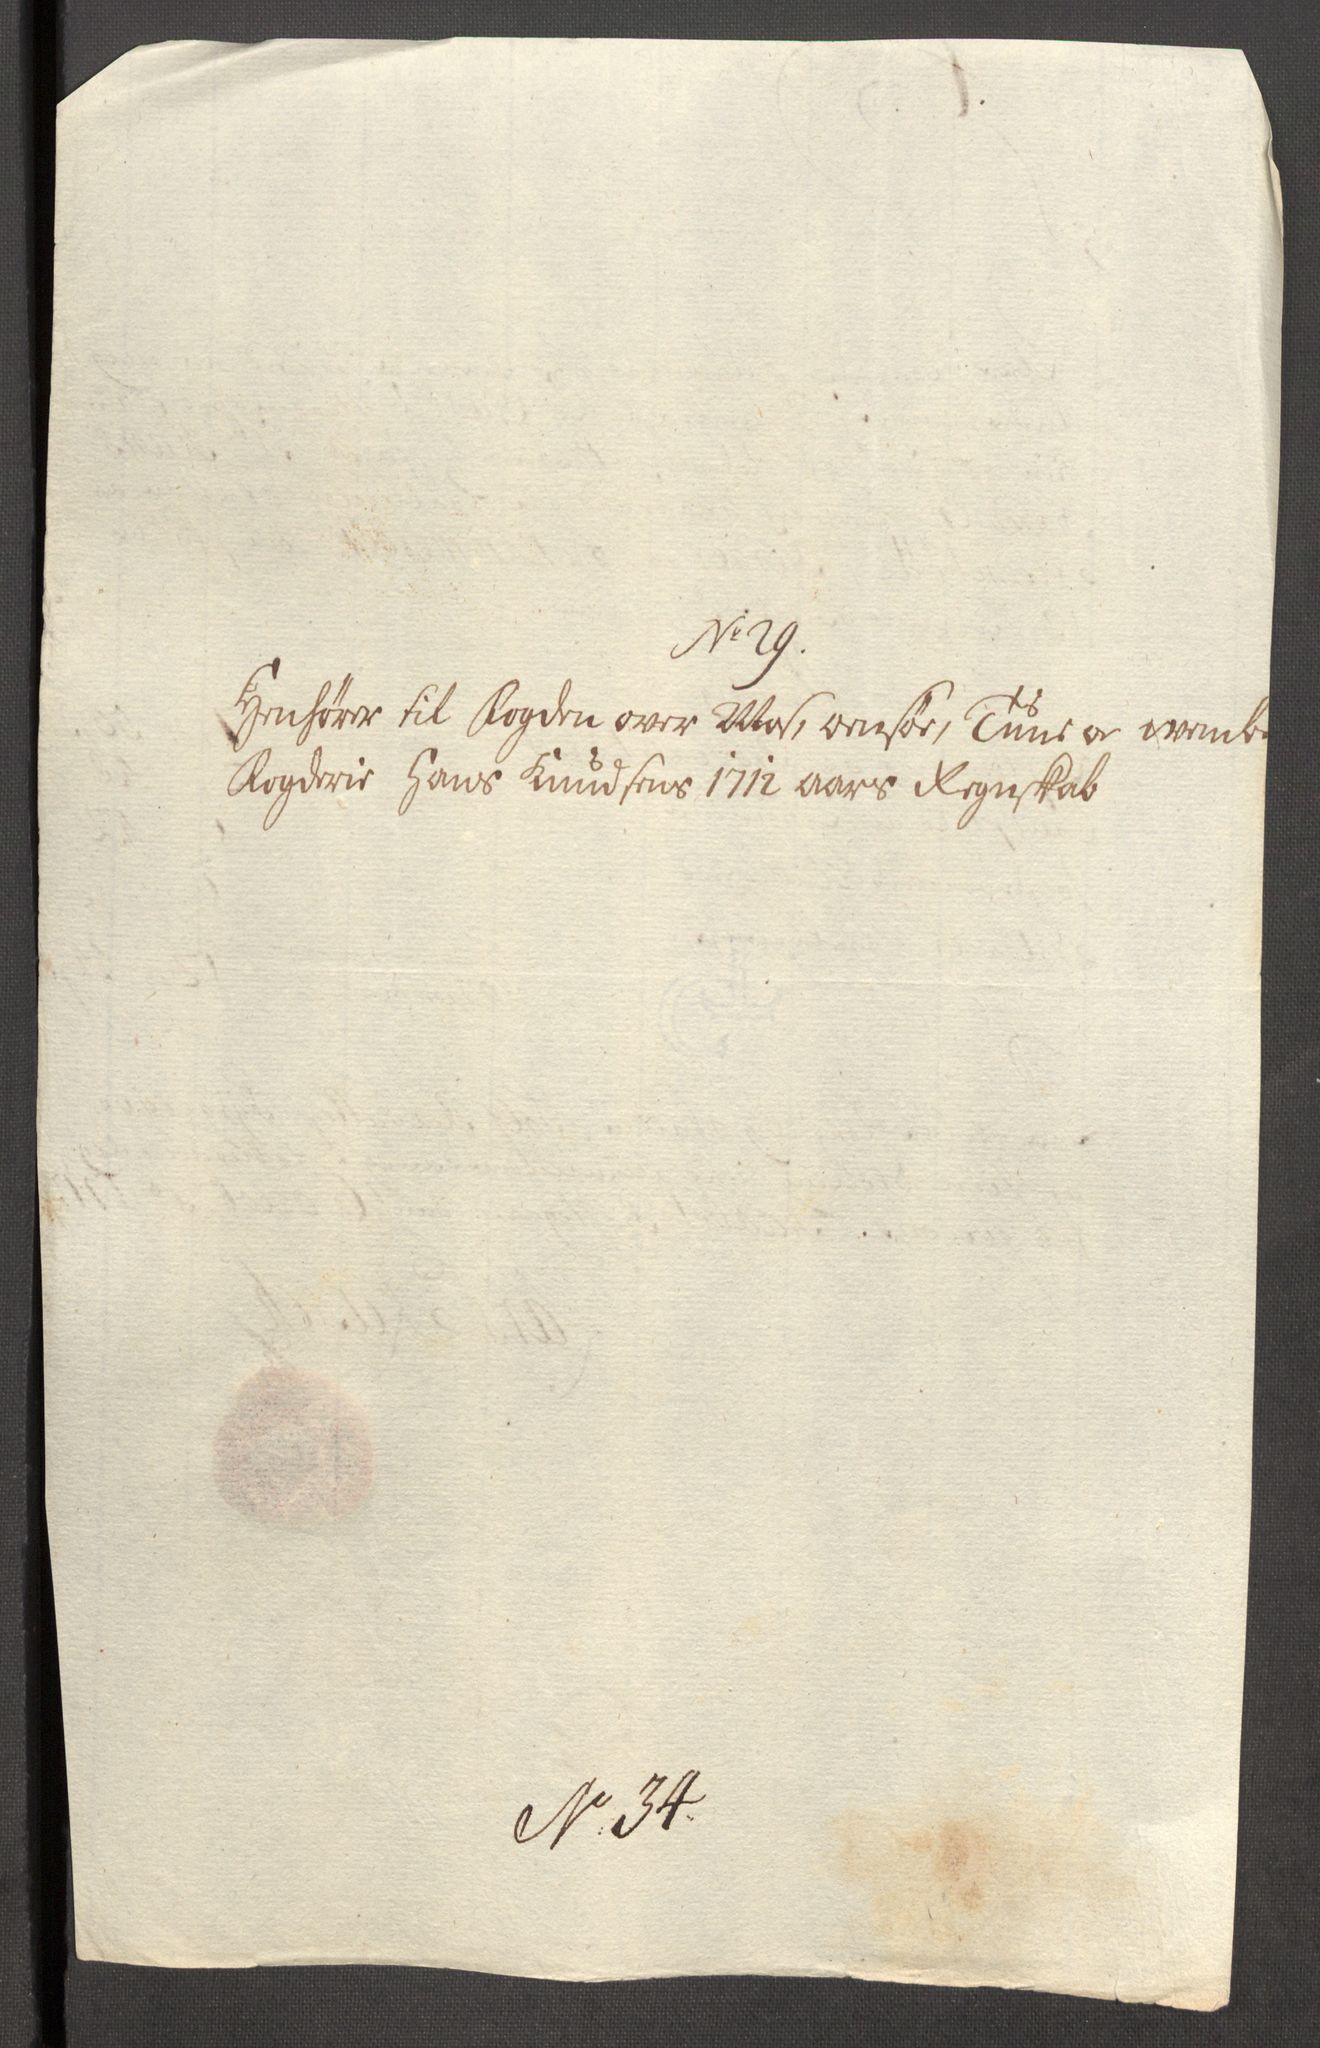 No 29.
Henhører til Fogden over Mos, onsøe, Tune og
Fogderie Hans Knudsens 1712 aars Regnskab
No. 34.